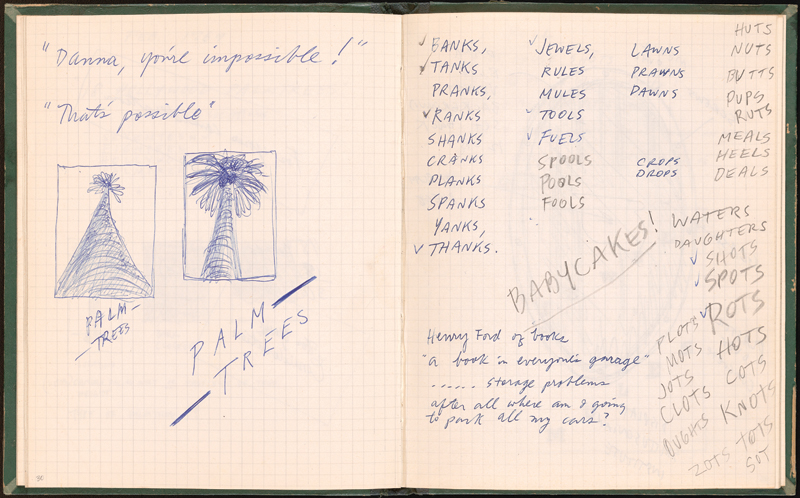 "Danna, you're impossible!"
"That's possible"
PALM
TREES
PALM
TREES
BANKS,
TANKS
PRANKS,
RANKS
SHANKS
CRANKS
PLANKS
SPANKS
YANKS,
THANKS.
JEWELS,
RULES
MULES
TOOLS
FUELS
SPOOLS
POOLS
FOOLS
LAWNS
PRAWNS
DAWNS
CROPS
DROPS
HUTS
NUTS
BUTTS
PUPS
RUTS
MEALS
HEELS
DEALS
BABYCAKES!
WATERS
DAUGHTERS
SHOTS
SPOTS
ROTS
PLOTS
HOTS
MOTS
COTS
JOTS
CLOTS
KNOTS
OUGHTS
TOTS
ZOTS
SOT
Henry Ford of books
"a book in everyone's garage"
...... storage problems
after all where am I going
to park all my cars?